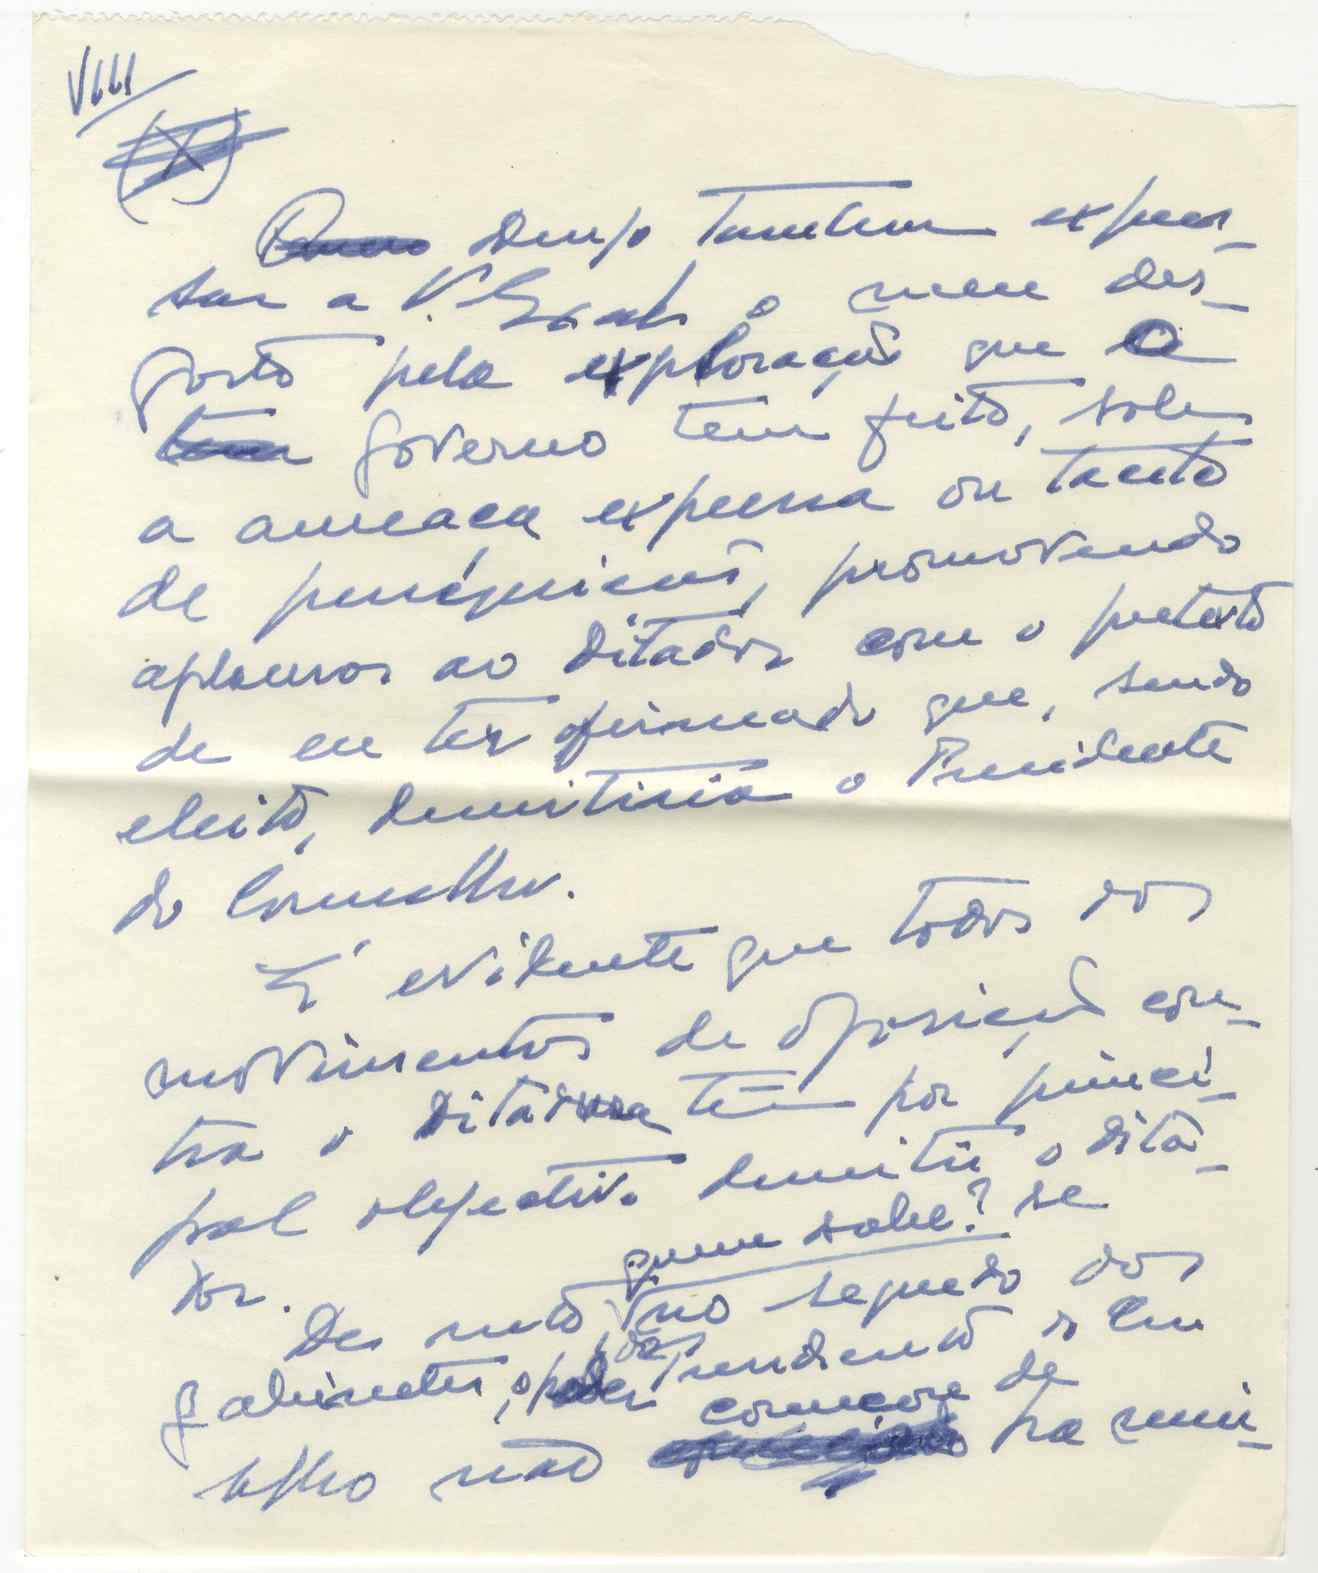 VIII
(X)
Desejo também expres-
sar a V. Excia o meu des-
gosto pela exploração que o
Governo tem feito, sob
a ameaça expressa ou tacita
de perseguições, promovendo
aplausos ao Ditador com o pretexto
de eu ter afirmado que, sendo
eleito, demitiria o Presidente
do Conselho.
É evidente que todos os
movimentos de oposição con-
tra o Ditadura têm por princi-
pal objectivo demitir o dita-
dor.
De resto, quem sabe? se
no segredo dos
gabinetes, o Presidente do Con-
selho não começou de
pa mui-